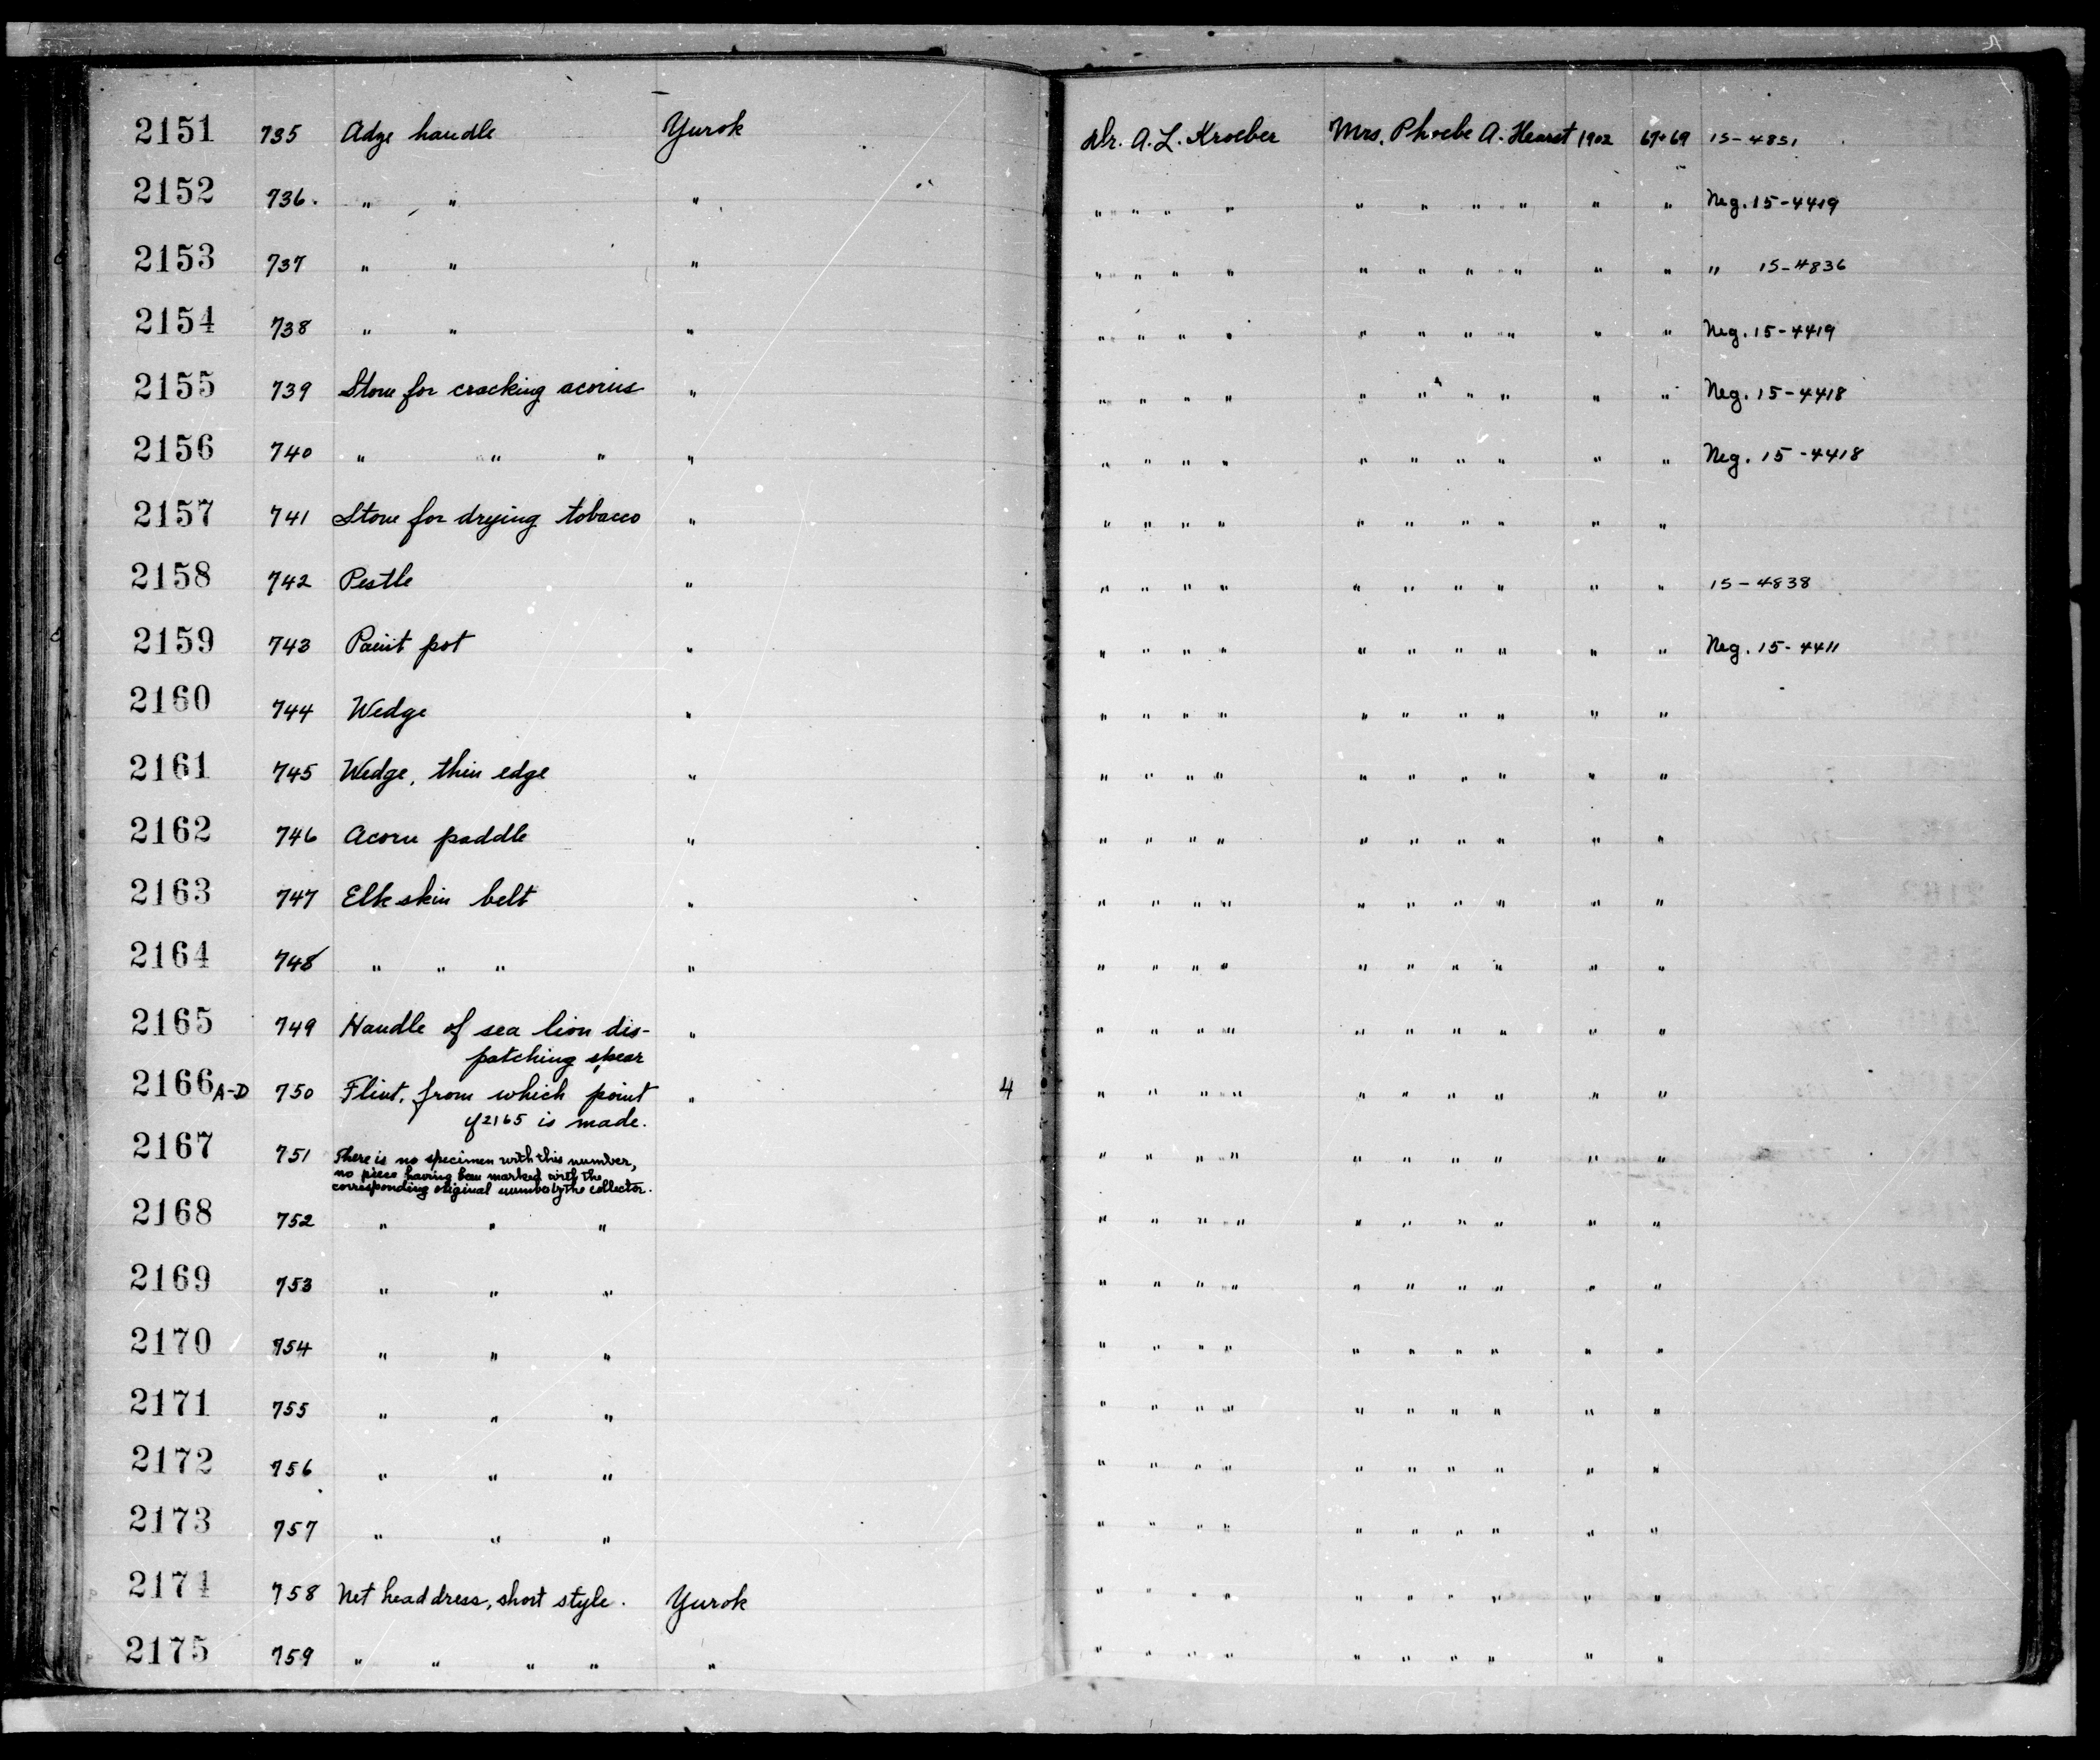 2151 735 Adze handle Yurok Dr. A. L. Kroeber Mrs. Phoebe A. Hearst 1902 67+69 15-4851
2152 736. " " " " " " " " " " " " " Neg. 15-4419
2153 737 " " " " " " " " " " " " " " 15-4836
2154 738 " " " " " " " " " " " " " Neg. 15-4419
2155 739 Stone for cracking acorns " " " " " " " " " " " Neg. 15-4418
2156 740 " " " " " " " " " " " " " " Neg. 15-4418
2157 741 Stone for drying tobacco " " " " " " " " " " "
2158 742 Pestle " " " " " " " " " " " 15-4838
2159 743 Paint pot " " " " " " " " " " " Neg. 15-4411
2160 744 Wedge " " " " " " " " " " "
2161 745 Wedge, thin edge " " " " " " " " " " "
2162 746 Acorn paddle " " " " " " " " " " "
2163 747 Elk skin belt " " " " " " " " " " "
2164 748 " " " " " " " " " " " " " "
2165 749 Handle of sea lion dis- " " " " " " " " " " "
patching spear
2166 A-D 750 Flint, from which point " 4 " " " " " " " " " "
of 2165 is made.
2167 751 There is no specimen with this number, " " " " " " " " " "
no piece having been marked with the
corresponding original number by the collector.
2168 752 " " " " " " " " " " " " "
2169 753 " " " " " " " " " " " " "
2170 754 " " " " " " " " " " " " "
2171 755 " " " " " " " " " " " " "
2172 756 " " " " " " " " " " " " "
2173 757 " " " " " " " " " " " " "
2174 758 Net headdress, short style. Yurok " " " " " " " " " "
2175 759 " " " " " " " " " " " " " " "